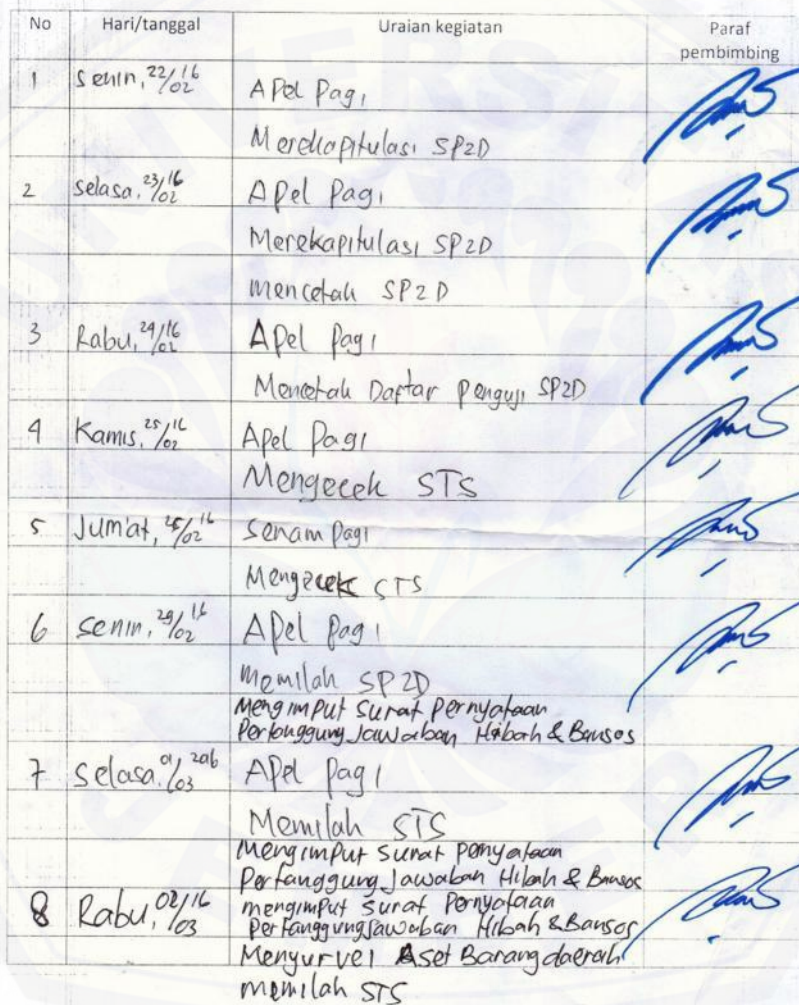 No Hari/tanggal Uraian kegiatan Paraf
pembimbing
1 Senin, 22/02 16 Apel Pagi
Merekapitulasi SP2D
2 Selasa, 23/02 16 Apel Pagi
Merekapitulasi SP2D
mencetak SP2D
3 Rabu, 24/02 16 Apel Pagi
Mencetak Daftar Penguji SP2D
4 Kamis, 25/02 16 Apel Pagi
Mengecek STS
5 Jum'at, 26/02 16 Senam Pagi
Mengecek STS
6 Senin, 29/02 16 Apel Pagi
Memilah SP2D
Mengimput Surat Pernyataan
Pertanggung Jawaban Hibah & Bansos
7 Selasa, 01/03 2016 Apel Pagi
Memilah STS
Mengimput Surat Pernyataan
Pertanggung Jawaban Hibah & Bansos
8 Rabu, 02/03 16 mengimput Surat Pernyataan
Pertanggung Jawaban Hibah & Bansos
Menyurvei Aset Barang daerah
memilah STS
UNIVERSITAS
JEMBER